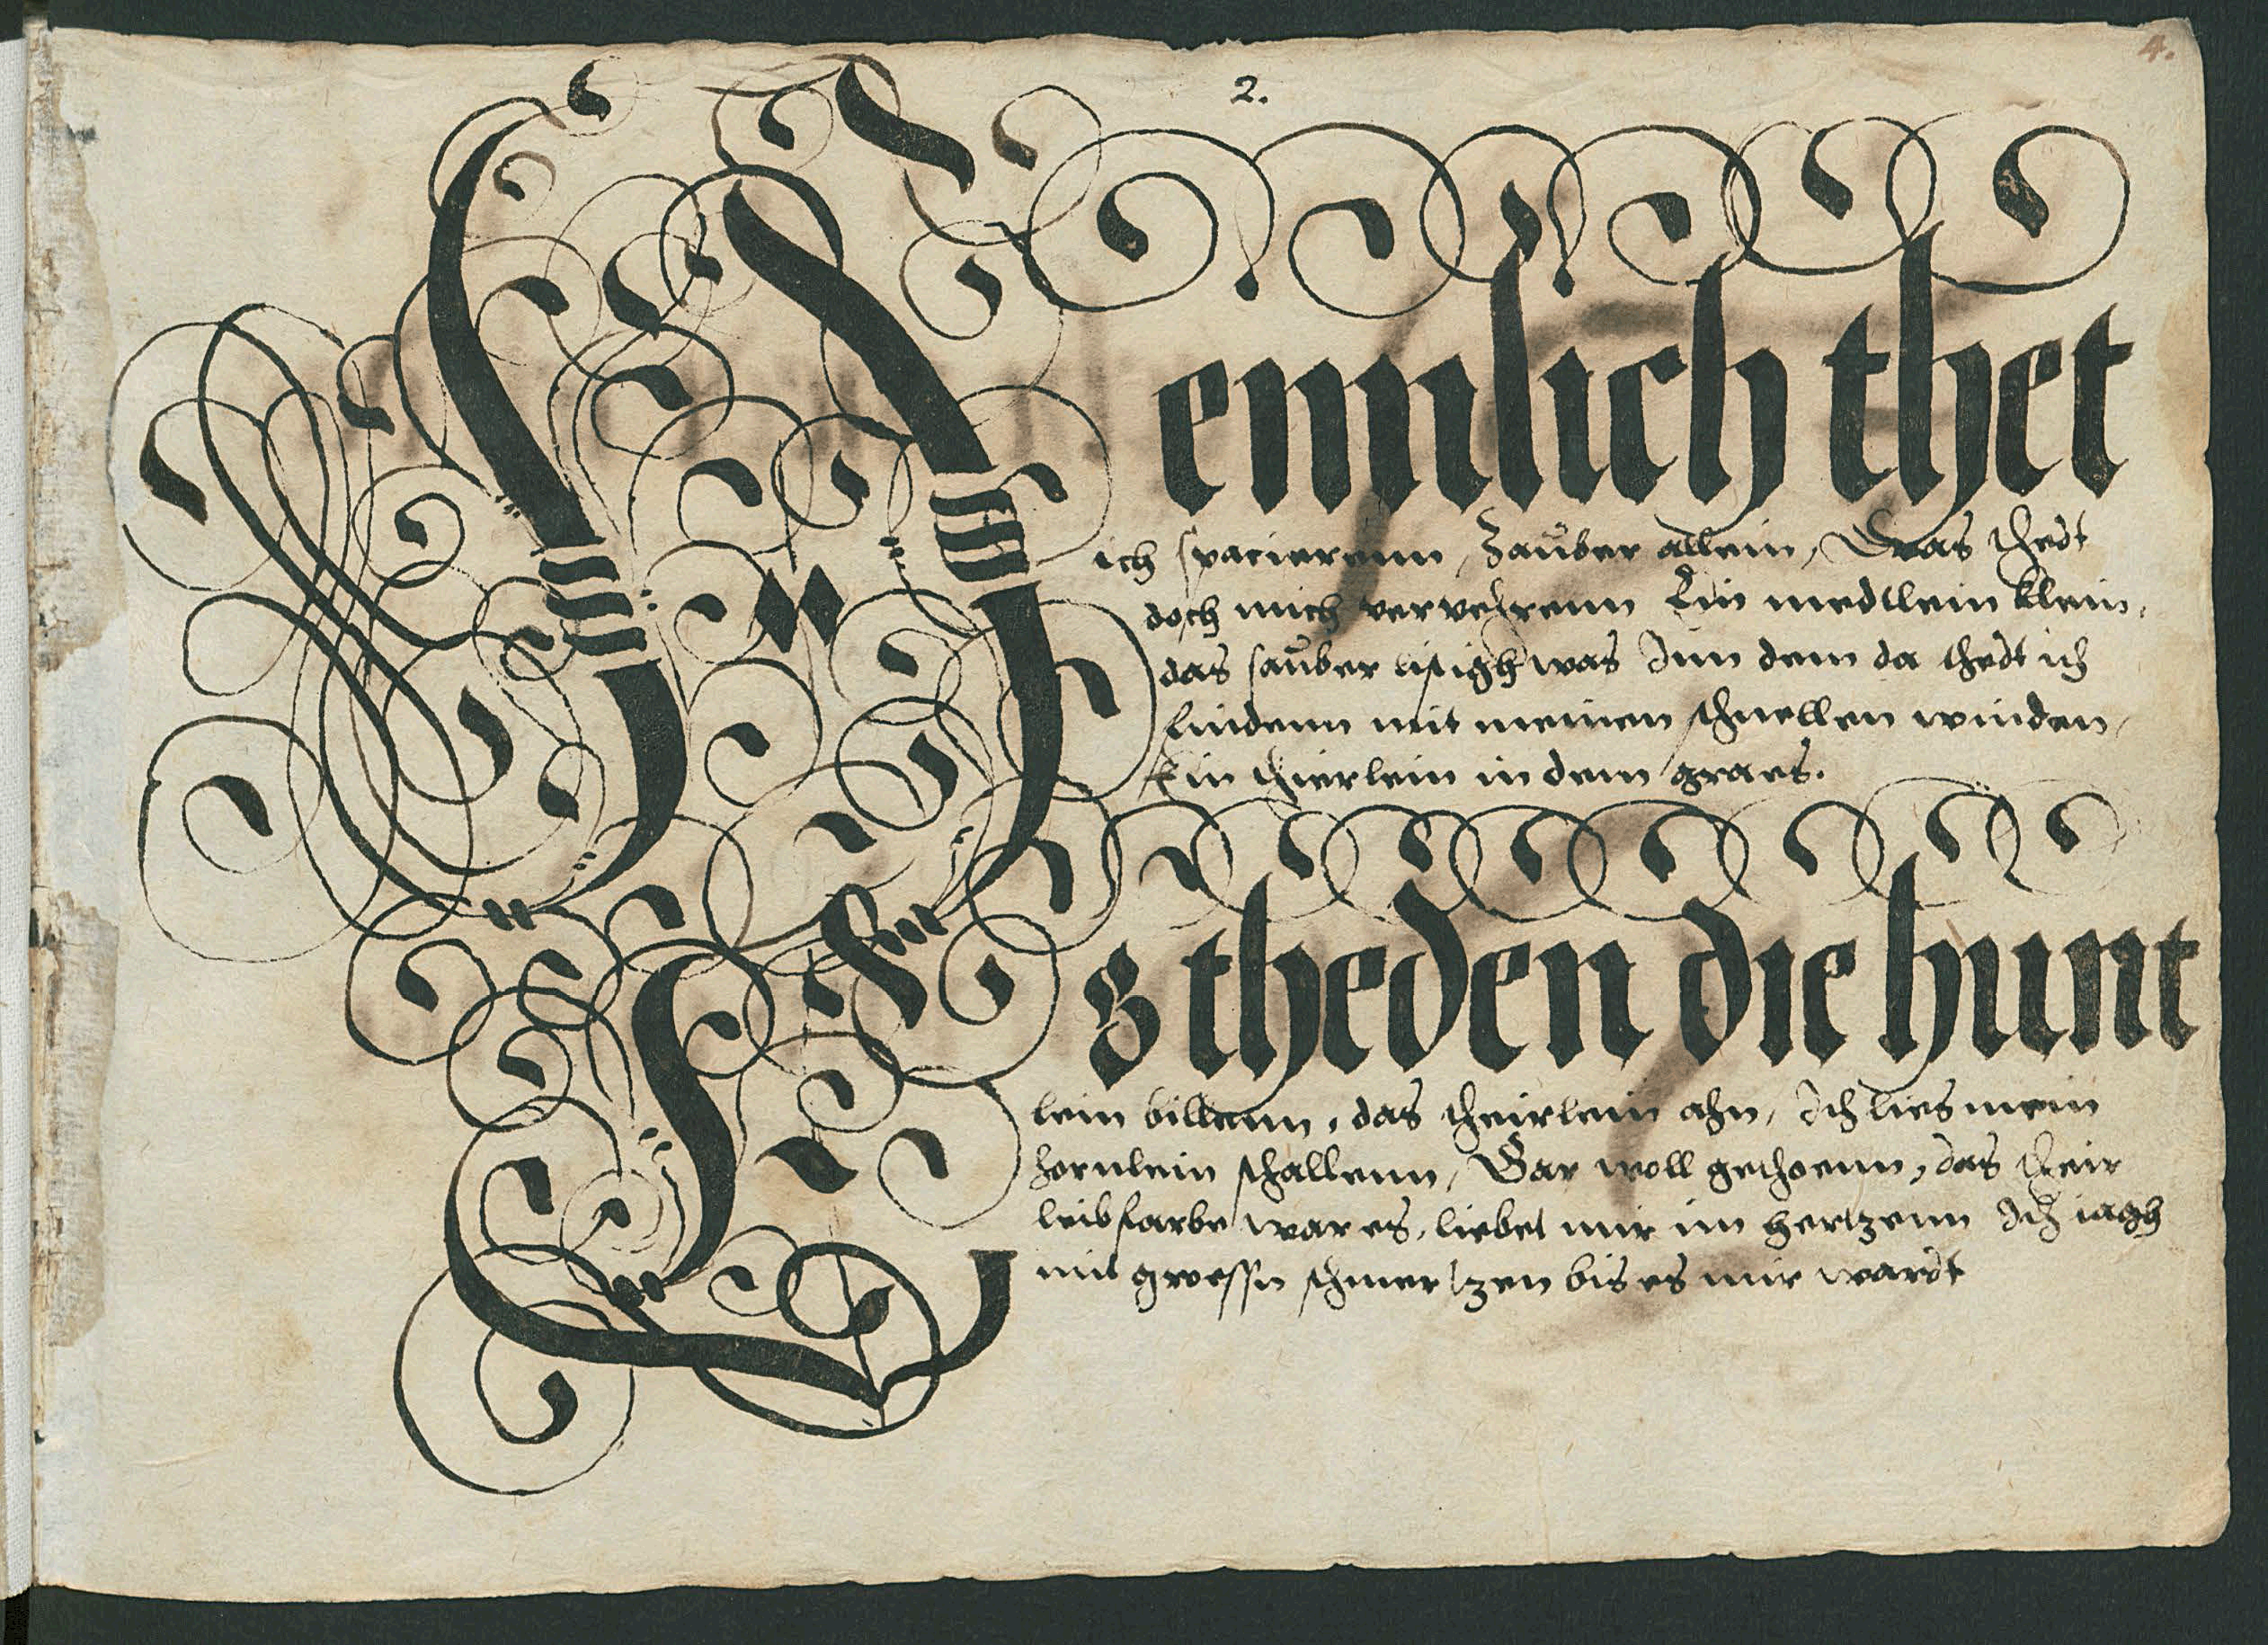 4.
2.
Nemlich thet
ich spacierenn, Zauber allein, Was thedt
doch mich vervehrenn Ein medtlein klein,
das sauber listigh was Inn dem da thedt ich
findenn mit meinen schnellen winden,
Ein thierlein in dem graes.
Es theden die hunt
lein billenn, das theirlein ahn, Ich lies mein
hornlein schallenn, Gar woll gethoenn, das their
leibfarbe war es, liebet mir im hertzenn Ich iagh
mit groessn schmertzen bis es mir wardt